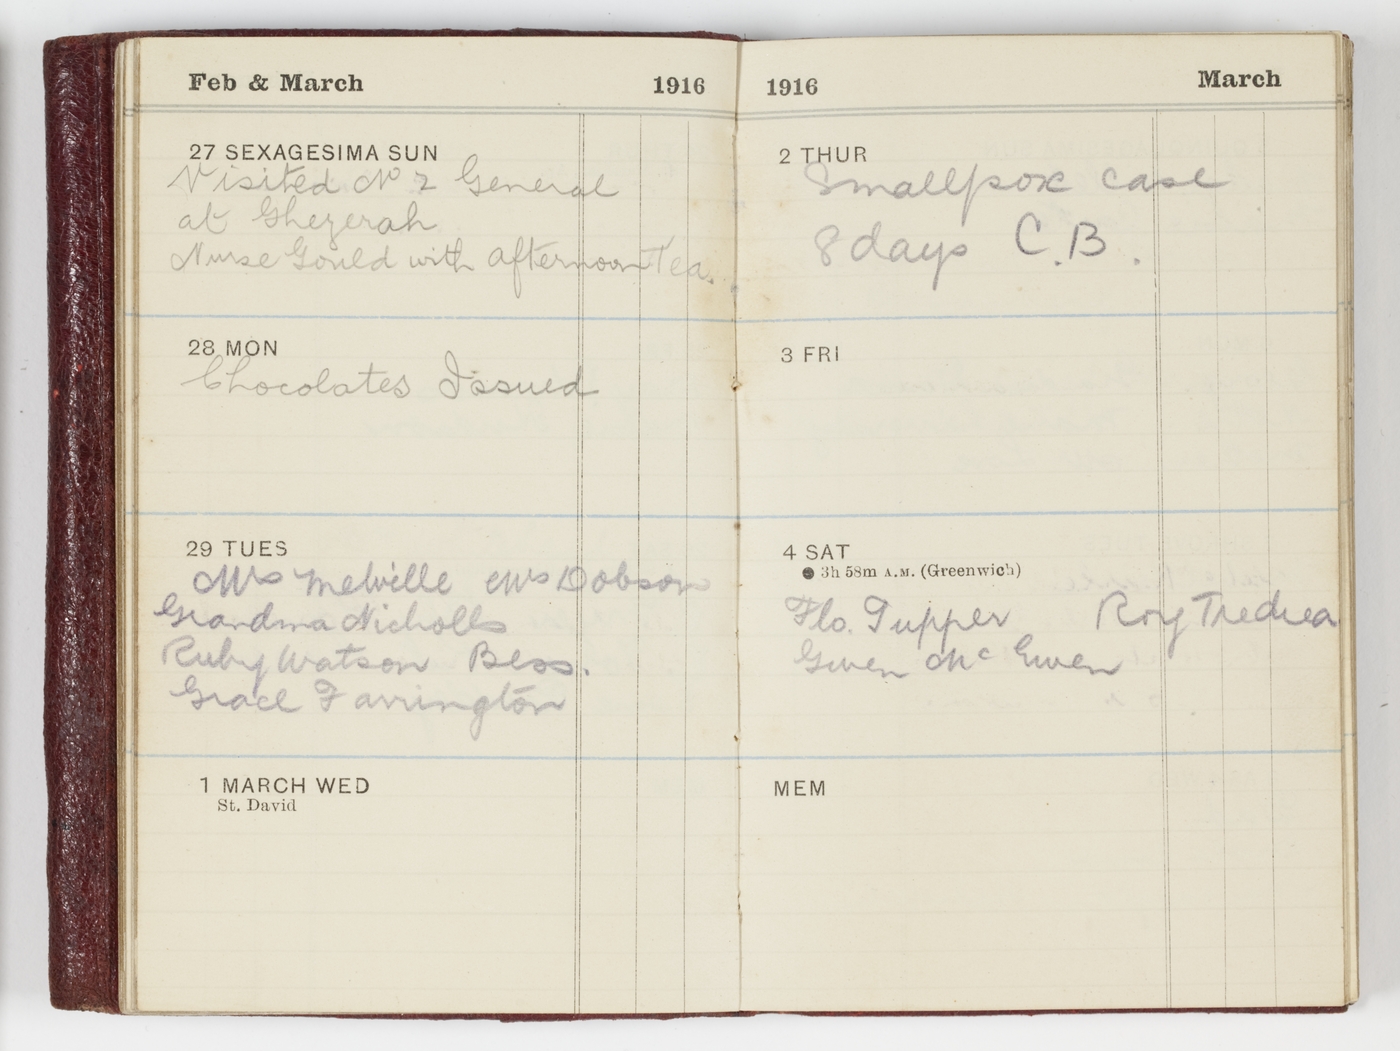 Feb & March 1916
27 SEXAGESIMA SUN
Visited No 2 General
at Ghezerah
Nurse Gould with afternoon Tea.
28 MON
Chocolates Issued
29 TUES
Mrs Melville Mrs Dobson
Grandma Nicholls
Ruby Watson Bess.
Grace Farrington
1 MARCH WED
St. David
1916 March
2 THUR
Smallpox case
8 days C.B.
3 FRI
4 SAT
● 3h 58m A.M. (Greenwich)
Flo. Tupper Roy Tredrea
Gwen McEwen
MEM